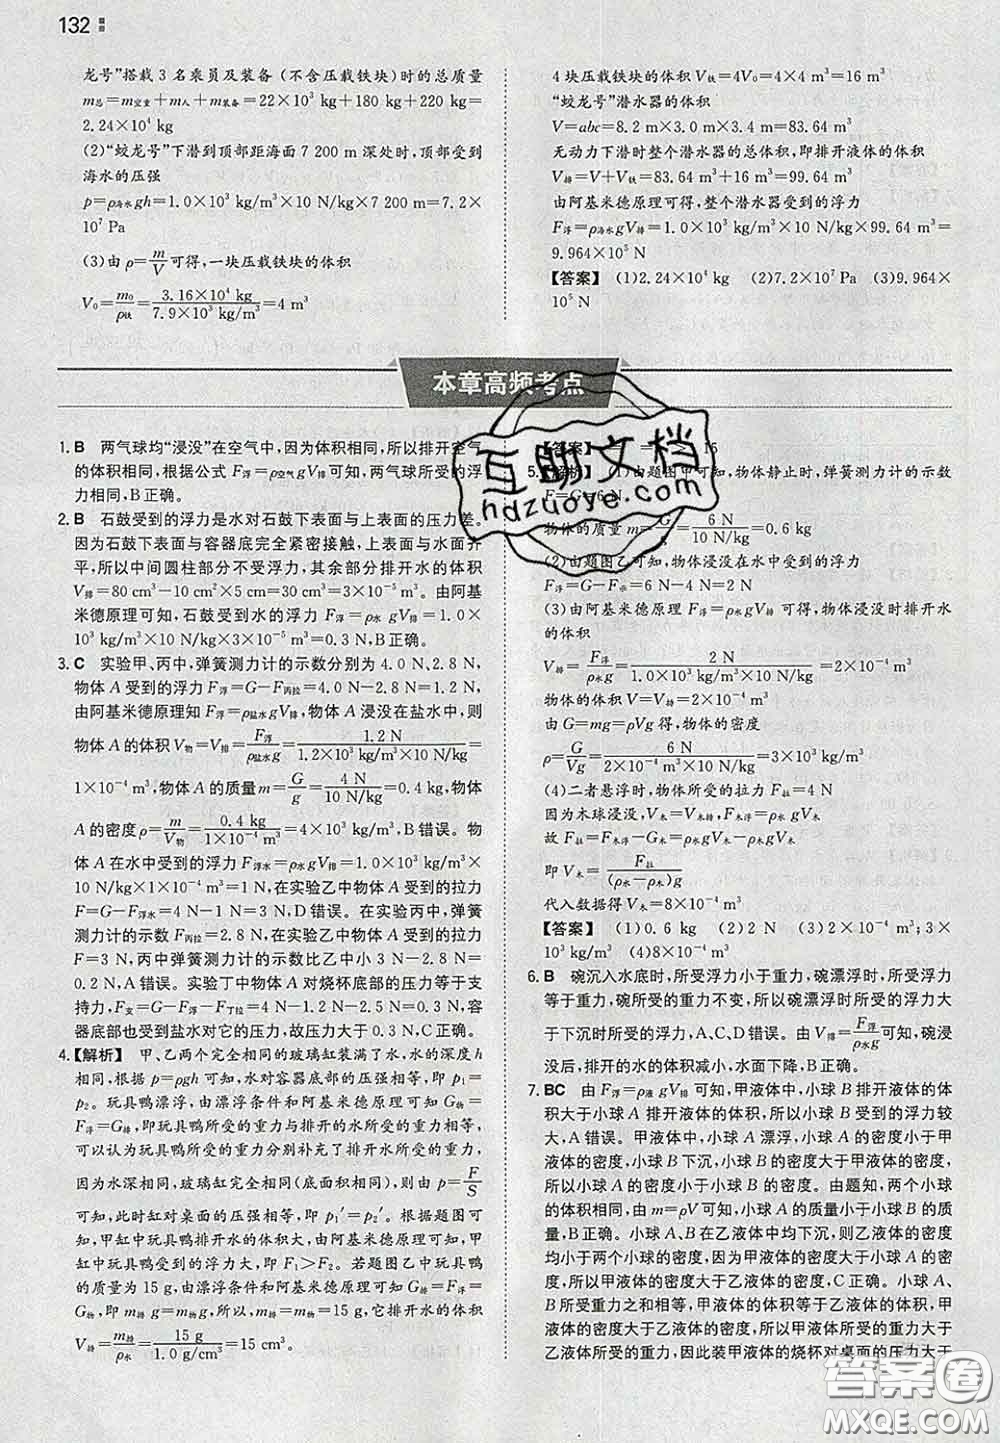 132
龙号"搭载 3 名乘员及装备(不含压载铁块)时的总质量
m总=m空重+m人+m装备=22×10³ kg+180 kg+220 kg=
2.24×10⁴ kg
(2)"蛟龙号"下潜到顶部距海面 7 200 m 深处时,顶部受到
海水的压强
p=ρ海水gh=1.0×10³ kg/m³×10 N/kg×7 200 m=7.2×
10⁷ Pa
(3)由 ρ=m/V 可得,一块压载铁块的体积
V₀=m₀/ρ铁=3.16×10⁴ kg/7.9×10³ kg/m³=4 m³
4 块压载铁块的体积 V铁=4V₀=4×4 m³=16 m³
"蛟龙号"潜水器的体积
V=abc=8.2 m×3.0 m×3.4 m=83.64 m³
无动力下潜时整个潜水器的总体积,即排开液体的体积
V排=V+V铁=83.64 m³+16 m³=99.64 m³
由阿基米德原理可得,整个潜水器受到的浮力
F浮=ρ海水gV排=1.0×10³ kg/m³×10 N/kg×99.64 m³=
9.964×10⁵ N
【答案】 (1)2.24×10⁴ kg (2)7.2×10⁷ Pa (3)9.964×
10⁵ N
本章高频考点
1. B 两气球均"浸没"在空气中,因为体积相同,所以排开空气
的体积相同,根据公式 F浮=ρ空气gV排 可知,两气球所受的浮
力相同,B正确。
2. B 石鼓受到的浮力是水对石鼓下表面与上表面的压力差。
因为石鼓下表面与容器底完全紧密接触,上表面与水面齐
平,所以中间圆柱部分不受浮力,其余部分排开水的体积
V排=80 cm³-10 cm²×5 cm=30 cm³=3×10⁻⁵ m³。由阿基
米德原理可知,石鼓受到水的浮力 F浮=ρ水 gV排=1.0×
10³ kg/m³×10 N/kg×3×10⁻⁵ m³=0.3 N,B正确。
3. C 实验甲、丙中,弹簧测力计的示数分别为 4.0 N、2.8 N,
物体 A 受到的浮力 F浮=G-F丙拉=4.0 N-2.8 N=1.2 N,
由阿基米德原理知 F浮=ρ盐水gV排,物体 A 浸没在盐水中,则
物体 A 的体积 V物=V排=F浮/ρ盐水g=1.2 N/1.2×10³ kg/m³×10 N/kg=
1×10⁻⁴ m³,物体 A 的质量 m=G/g=4 N/10 N/kg=0.4 kg,物体
A 的密度 ρ=m/V物=0.4 kg/1×10⁻⁴ m³=4×10³ kg/m³,B错误。物
体 A 在水中受到的浮力 F浮水=ρ水gV排=1.0×10³ kg/m³×
10 N/kg×1×10⁻⁴ m³=1 N,在实验乙中物体 A 受到的拉力
F乙拉=G-F浮水=4 N-1 N=3 N,D错误。实验丙中,弹簧
测力计的示数 F丙拉=2.8 N,丙中测力计的示数比乙中小
0.2 N,A错误。实验丁中物体 A 对烧杯底部的压力等于支
持力,F支=G-F浮-F丁拉=4 N-1.2 N-2.5 N=0.3 N,
容器底部也受到盐水对它的压力,故压力大于0.3 N,C正确。
4.【解析】 甲、乙两个完全相同的玻璃缸装满了水,水的深度 h
相同,根据 p=ρgh 可知,水对容器底部的压强相等,即 p₁=
p₂。玩具鸭漂浮,由漂浮条件和阿基米德原理可知 G物=
F浮=G排,即玩具鸭所受的重力与排开的水所受的重力相等,
可以认为玩具鸭所受的重力分别补充了排开水所受的重力,
因为水深相同,玻璃缸完全相同(底面积相同),则由 p=F/S
可知,此时缸对桌面的压强相等,即 p₁′=p₂′。根据题图可
知,甲缸中玩具鸭排开水的体积大,由阿基米德原理可知甲
缸中玩具鸭所受的浮力大,即 F₁>F₂。若题图乙中玩具鸭
的质量为 15 g,由漂浮条件和阿基米德原理可知 G排=F浮=
G物,即 m排g=m物g,所以,m排=m物=15 g,它排开水的体积
V排=m排/ρ水=15 g/1.0 g/cm³=15 cm³。
【答案】 15
5.【解析】 (1)由题图甲可知,物体静止时,弹簧测力计的示数
F=G=6 N
物体的质量 m=G/g=6 N/10 N/kg=0.6 kg
(2)由题图乙可知,物体浸没在水中受到的浮力
F浮=G-F示=6 N-4 N=2 N
(3)由阿基米德原理 F浮=ρ水gV排 可得,物体浸没时排开水
的体积
V排=F浮/ρ水g=2 N/1.0×10³ kg/m³×10 N/kg=2×10⁻⁴ m³
物体的体积 V=V排=2×10⁻⁴ m³
由 G=mg=ρVg 得,物体的密度
ρ=G/Vg=6 N/2×10⁻⁴ m³×10 N/kg=3×10³ kg/m³
(4)二者悬浮时,物体所受的拉力 F拉=4 N
因为木球浸没,V木=V木排,F木浮=ρ水gV木
故 F拉=F木浮-G木=ρ水gV木-ρ木gV木
即 V木=F拉/(ρ水-ρ木)g
代入数据得 V木=8×10⁻⁴ m³
【答案】 (1)0.6 kg (2)2 N (3)2×10⁻⁴ m³;3×
10³ kg/m³ (4)8×10⁻⁴ m³
6. B 碗沉入水底时,所受浮力小于重力,碗漂浮时,所受浮力
等于重力,碗所受的重力不变,所以碗漂浮时所受的浮力大
于下沉时所受的浮力,A、C、D错误。由 V排=F浮/ρ水g可知,碗浸
没后,排开的水的体积减小,水面下降,B正确。
7. BC 由 F浮=ρ液 gV排 可知,甲液体中,小球 B 排开液体的体
积大于小球 A 排开液体的体积,所以小球 B 受到的浮力较
大,A错误。甲液体中,小球 A 漂浮,小球 A 的密度小于甲
液体的密度,小球 B 下沉,小球 B 的密度大于甲液体的密度,
所以小球 A 的密度小于小球 B 的密度。由题知,两小球的体
积相等,由 m=ρV可知,小球 A 的质量小于小球 B 的质量,
B正确。小球 A、B 在乙液体中均下沉,则乙液体的密度
均小于两个小球的密度,因为甲液体的密度大于小球 A 的密
度,所以甲液体的密度大于乙液体的密度,C正确。小球 A、
B 所受重力之和相等,甲液体的体积等于乙液体的体积,甲液
体的密度大于乙液体的密度,所以甲液体所受的重力大于乙液体
所受的重力,因此装甲液体的烧杯对桌面的压力大于
互助文档
hdzuoye.com
答案圈
MXQE.COM